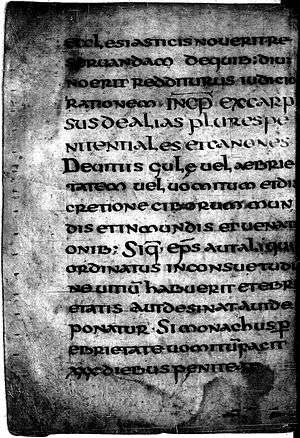 ecclesiasticis nouerit re
seruandam dequib; diui
noerit redditurus iudicio
rationem · Incp̄ excarp
sus dealias plurespe
nitentiales et canones
Deuitiis gule uel aebrie
tatem uel uomitum et di
cretione ciborum mun
dis et inmundis et uenati
onib; Siq; ep̄s aut aliqui
ordinatus inconsuetudi
ne uitiū habuerit et ebri
etatis aut desinat aut de
ponatur · Si monachus p
ebrietate uomitū facit
xxx diebus